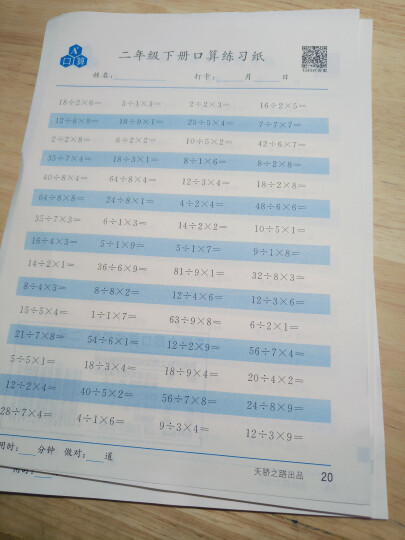 A
口算
二年级下册口算练习纸
姓名: 打卡: 月 日
18÷2×6= 3÷1×3= 2÷2×3= 16÷2×5=
12÷6×8= 18÷9×1= 25÷5×4= 7÷7×7=
2÷2×8= 6÷2×2= 10÷5×2= 42÷6×7=
35÷7×4= 18÷3×1= 8÷1×6= 8÷2×8=
40÷8×4= 64÷8×4= 12÷3×4= 18÷2×8=
64÷8×8= 24÷8×1= 4÷2×4= 48÷6×6=
35÷7×3= 6÷1×3= 14÷2×2= 10÷5×1=
16÷4×3= 5÷1×9= 5÷1×7= 9÷1×8=
14÷2×1= 36÷6×9= 81÷9×1= 32÷8×3=
8÷4×3= 8÷8×2= 12÷4×6= 12÷3×6=
15÷5×4= 1÷1×7= 63÷9×8= 6÷2×1=
21÷7×8= 54÷6×1= 12÷2×9= 56÷7×4=
5÷5×1= 18÷3×4= 18÷9×4= 20÷4×2=
12÷2×4= 40÷5×2= 56÷7×8= 24÷8×9=
28÷7×4= 4÷1×6= 9÷3×4= 12÷3×9=
用时: 分钟 做对: 道
天骄之路出品 20